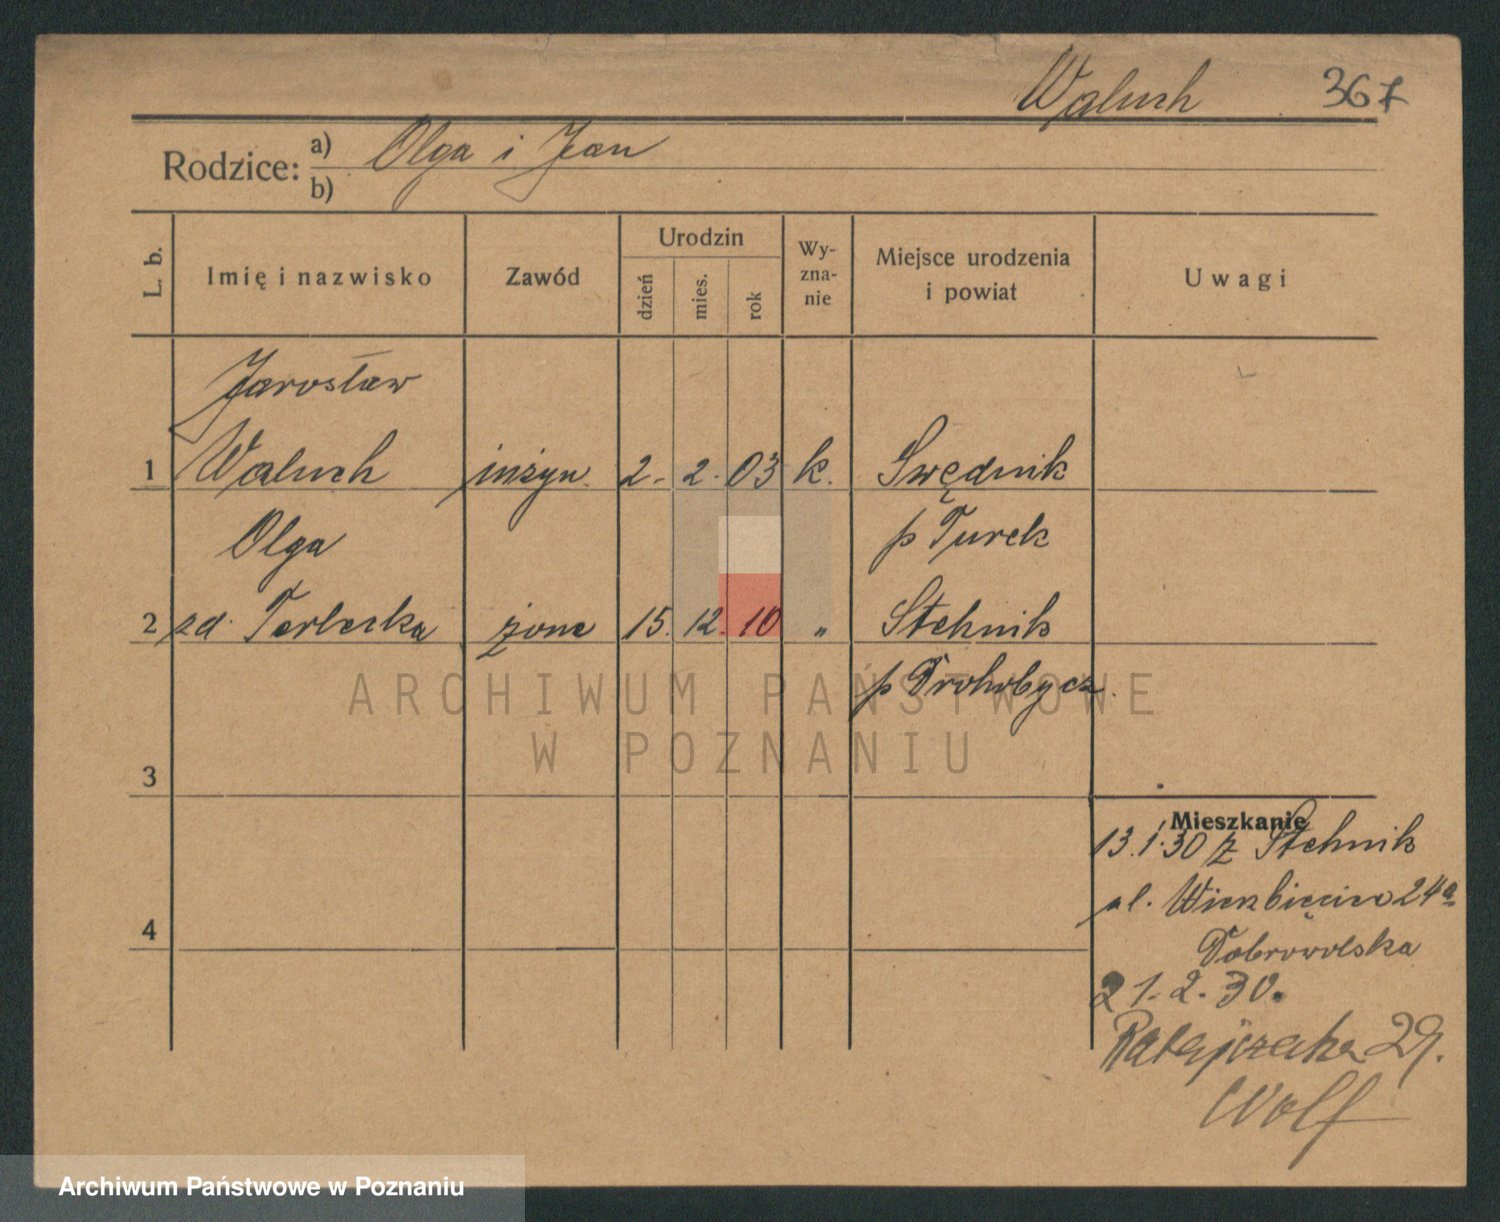 Waluch 367
Rodzice: a) Olga i Jan
b)
L. b. Imię i nazwisko Zawód Urodzin dzień mies. rok Wy-zna-nie Miejsce urodzenia i powiat Uwagi
Jarosław
1 Waluch inżyn. 2. 2. 03 k. Swędnik
Olga p Turek
2 zd. Terlecka żona 15. 12. 10 „ Stebnik
p Drohobycz.
ARCHIWUM PAŃSTWOWE
W POZNANIU
3
Mieszkanie
13.1.30 z Stebnik
4
ul. Wierzbięcice 24a
Dobrowolska
21.2.30.
Ratajczaka 29.
Wolf
Archiwum Państwowe w Poznaniu